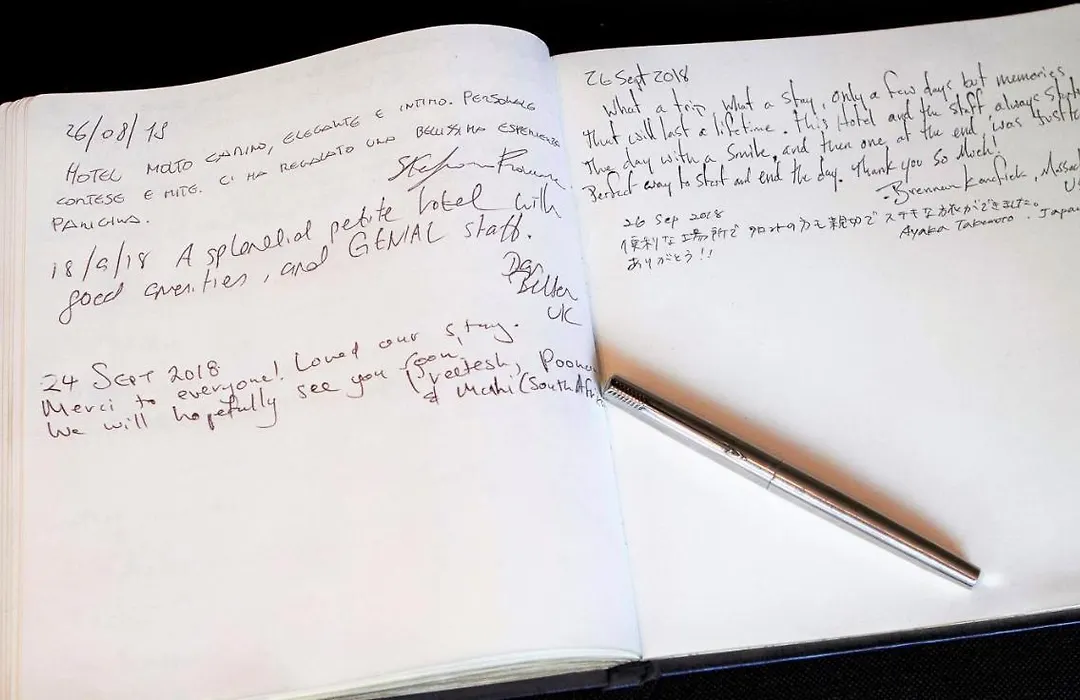 26/08/18
HOTEL MOLTO CARINO, ELEGANTE E INTIMO. PERSONALE
CORTESE E MITE. CI HA REGALATO UNA BELLISSIMA ESPERIENZA
PARIGINA.
18/9/18 A splendid petite hotel with
good amenities, and GENIAL staff.
Dan
UK
24 SEPT 2018
Merci to everyone! Loved our stay.
We will hopefully see you soon.
Preetesh, Poona
& Mahi (South Afri
26 Sept 2018
What a trip, what a stay, only a few days but memories
that will last a lifetime. This Hotel and the staff always starts
the day with a smile, and then one at the end, was just the
Perfect way to start and end the day. Thank you So Much!
- Brennen
26 Sep 2018
便利な立場所で フロントの方も親切で ステキな旅ができました。
ありがとう!!
Ayaka Takemoto. Japan